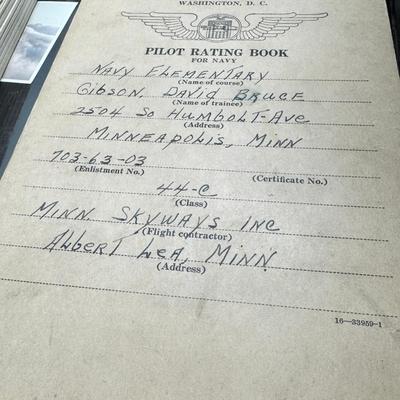 WASHINGTON, D. C.
PILOT RATING BOOK
FOR NAVY
NAVY ELEMENTARY
(Name of course)
GIBSON, DAVID BRUCE
(Name of trainee)
2504 SO HUMBOLT-AVE
(Address)
MINNEAPOLIS, MINN
703-63-03
(Enlistment No.) (Certificate No.)
44-C
(Class)
MINN. SKYWAYS INC
(Flight contractor)
ALBERT LEA, MINN.
(Address)
16—33959-1